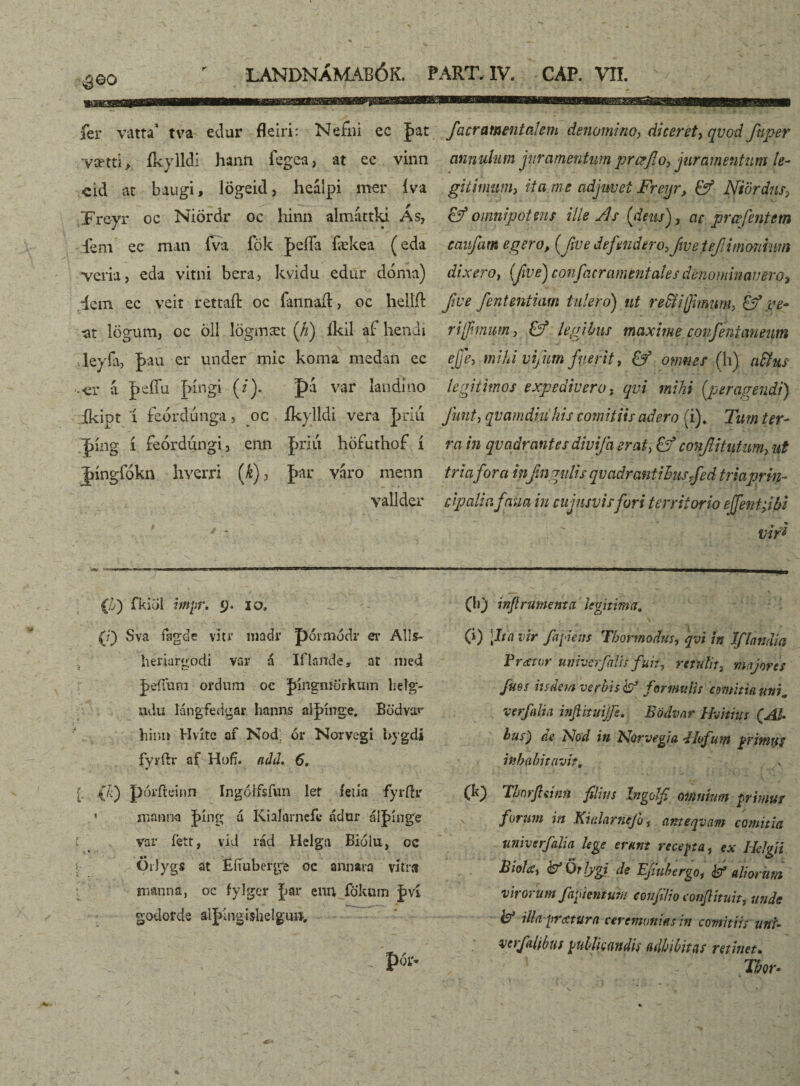 300
LANDNÁMABÓK. PART. IV. CAP. VII.
ſer vatta tva edur fleiri: Nefni ec þat
vætti, ſkylldi hann ſegea, at ec vinn
eid at baugi, lögeid, healpi mer ſva
Freyr oc Niördr oc hinn almáttki Ás,
ſem ec man ſva ſök þeſſa ſækea (eda
veria, eda vitni bera, kvidu edur dóma)
ſem ec veit rettaſt oc ſannaſt, oc hellſt
at lögum, oc öll lögmæt (h) ſkil af hendi
leyſa, þau er under mic koma medan ec
er á þeſſu þingi (i). þá var landino
ſkipt í feórdúnga, oc ſkylldi vera þriú
þing í feórdúngi, enn þriú höfuthof í
þingſókn hverri (k), þar váro menn
vallder
ſacramentalem denomino, diceret, qvod ſuper
annulum juramentum præſto, juramentum le-
gitimum, ita me adjuvet Freyr, & Niördus,
& omnipotens ille As (deus), ac præſentem
cauſam egero, (ſive defendero, ſive teſtimonium
dixero, (ſive) conſacramentales denominavero,
ſive ſententiam tulero) ut rectiſſimum, & ve-
riſſimum, & legibus maxime conſentaneum
eſſe, mihi viſum fuerit, & omnes (h) actus
legitimos expedivero, qvi mihi (peragendi)
ſunt, qvamdiu his comitiis adero (i). Tum ter-
ra in qvadrantes diviſa erat, & conſtitutum, ut
tria fora in ſingulis qvadrantibus, ſed tria prin-
cipalia fana in cujusvis fori territorio eſſent; ibi
viri
(h) ſkiöl impr. 9. 10.
(i) Sva ſagde vitr madr þórmódr er Alls-
heriargodi var á Iſlande, at med
þeſſum ordum oc þingmörkum helg-
udu lángfedgar hanns alþinge. Bödvar
hinn Hvíte af Nod; ór Norvegi bygdi
fyrſtr af Hofi. add. 6.
[ (k) þórſteinn Ingólfsſun let ſetia fyrſtr
manna þing á Kialarneſe ádur álþinge
var ſett, vid rád Helga Biólu, oc
Örlygs at Eſiuberge oc annara vitra
manna, oc fylger þar enn ſökum því
godorde alþingishelgun.
þór-
(h) inſtrumenta legitima.
(i) Ita vir ſapiens Thormodus, qvi in Iſlandia
Prætor univerſalis fuit, retulit, majores
ſuos iisdem verbis & formulis comitia uni-
verſalia inſtituiſſe. Bödvar Hvitius (Al-
bus) de Nod in Norvegia Hofum primus
inhabitavit.
(k) Thorſteinn filius Ingolfi omnium primus
forum in Kialarneſo, anteqvam comitia
univerſalia lege erant recepta, ex Helgii
Biolæ, & Örlygi de Eſiubergo, & aliorum
virorum ſapientum conſilio conſtituit, unde
& illa prætura ceremonias in comitiis uni-
verſalibus publicandis adhibitas retinet.
Thor-